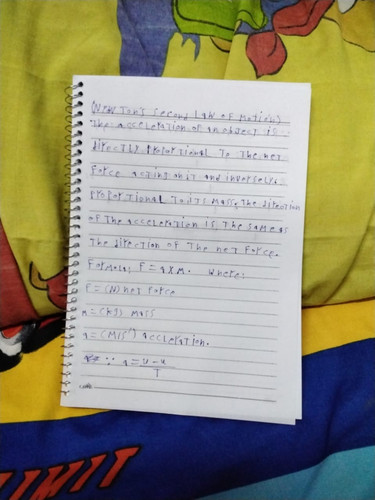 (Newton's second law of motion)
The acceleration of an object is
directly proportional to the net
force acting on it and inversely
proportional to its mass, the direction
of the acceleration is the same as
the direction of the net force.
Formula: F = a x m. Where:
F = (N) net force
m = (kg) mass
a = (M/S²) acceleration.
∵ a = v - u
T
LIMIT